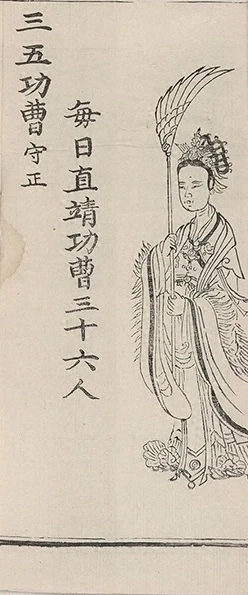 每日直靖功曹三十六人
三五功曹守正